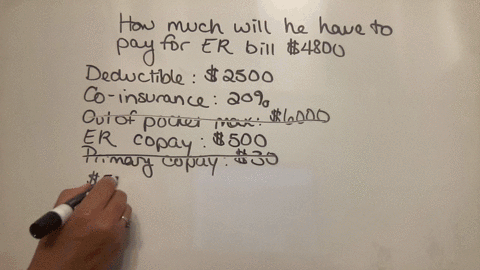 How much will he have to
pay for ER bill $4800
Deductible: $2500
Co-insurance: 20%
Out of pocket max: $6000
ER copay: $500
Primary copay: $30
$5